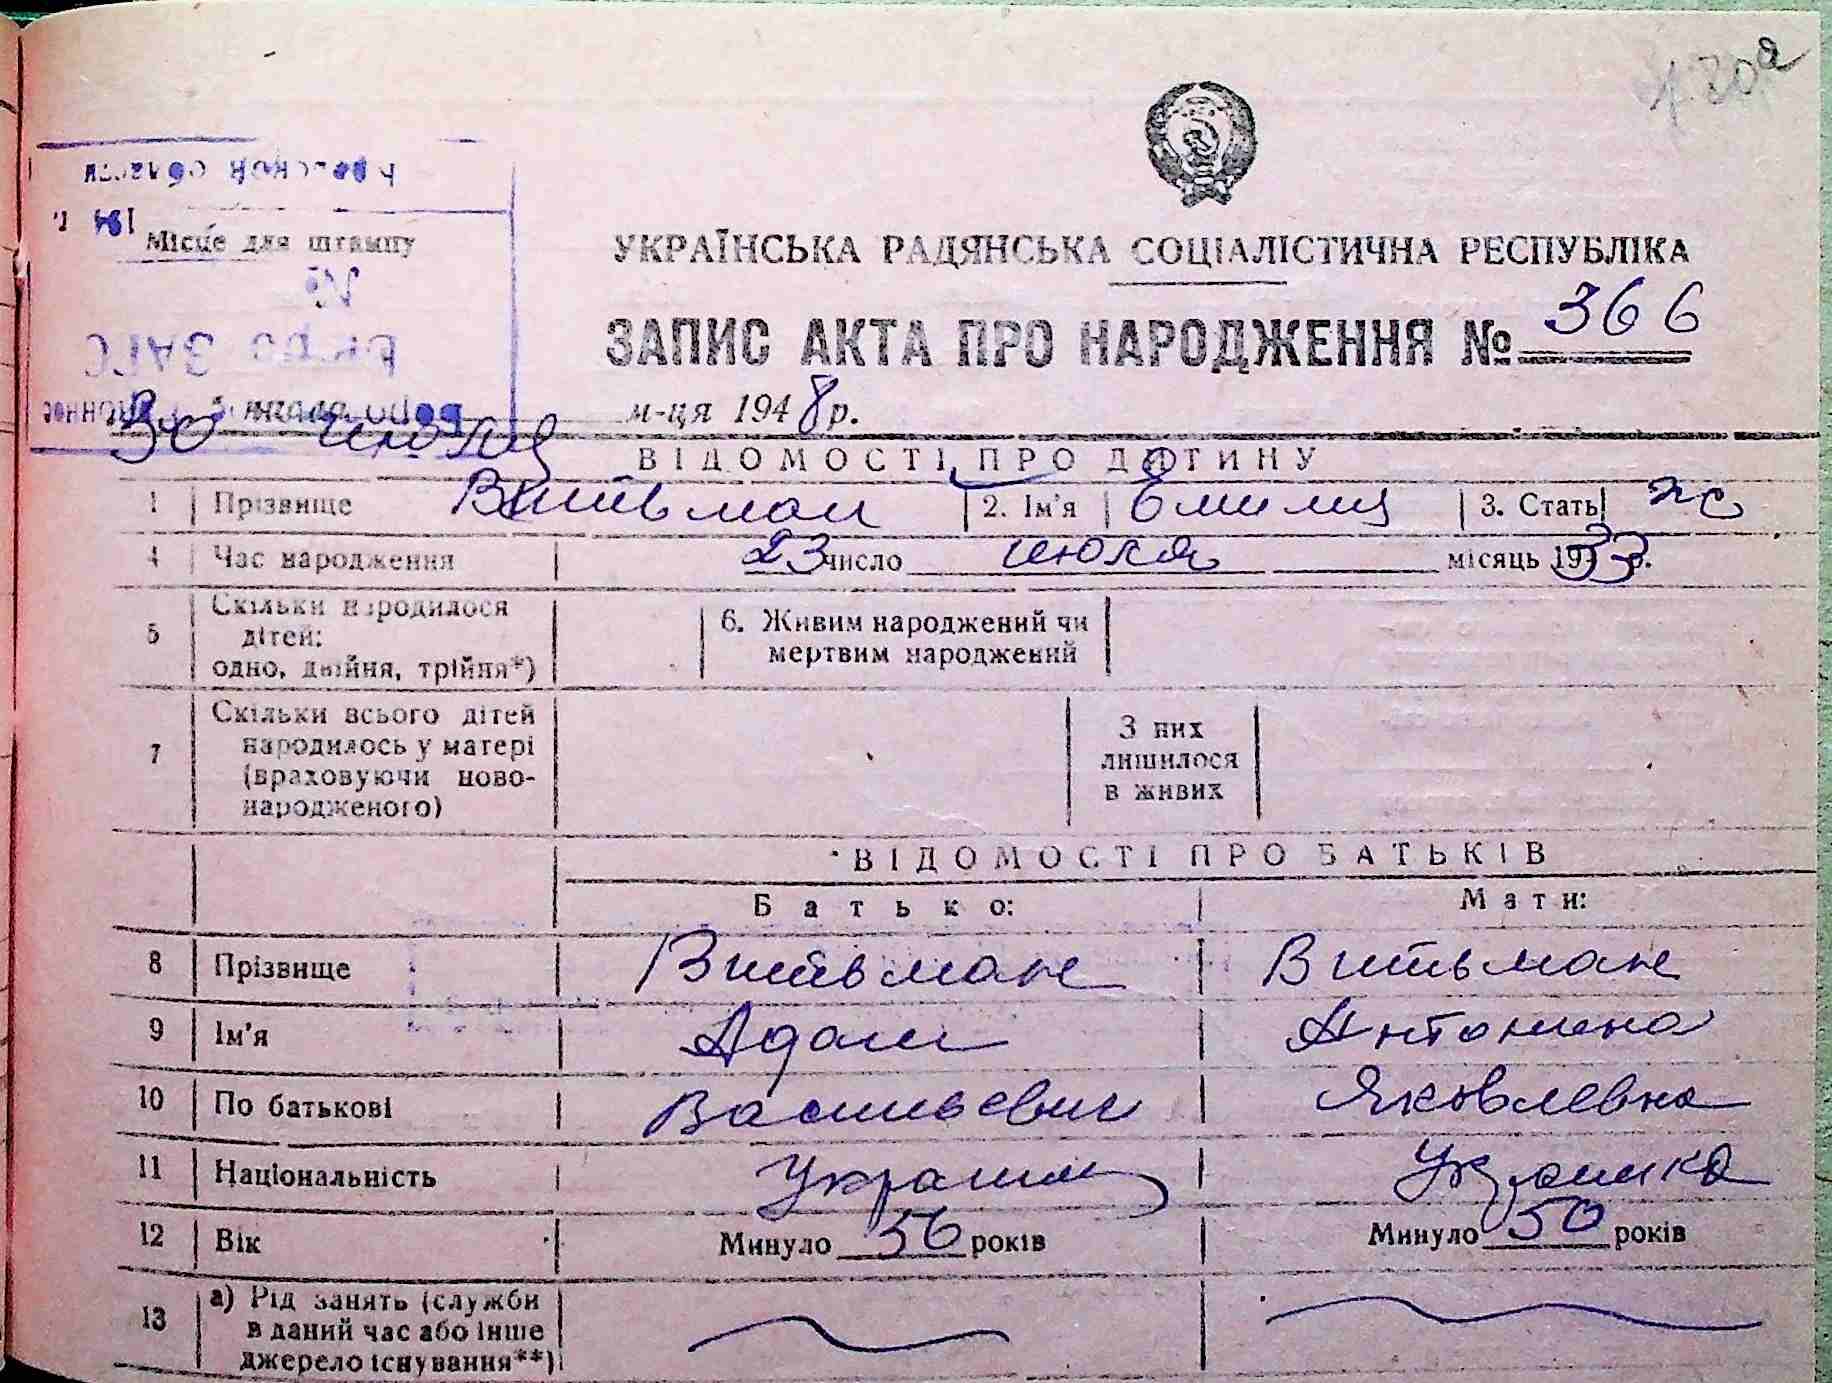 Місце для штампу
194 г.
№
Бюро ЗАГС
УКРАЇНСЬКА РАДЯНСЬКА СОЦІАЛІСТИЧНА РЕСПУБЛІКА
ЗАПИС АКТА ПРО НАРОДЖЕННЯ № 366
30 июля м-ця 1948 р.
ВІДОМОСТІ ПРО ДИТИНУ
1 Прізвище Витьман 2. Ім'я Эмилия 3. Стать ж
4 Час народження 23 число июля місяць 1933 р.
5 Скільки народилося
дітей:
одно, двійня, трійня*)
6. Живим народжений чи
мертвим народжений
7 Скільки всього дітей
народилось у матері
(враховуючи ново-
народженого)
З них
лишилося
в живих
ВІДОМОСТІ ПРО БАТЬКІВ
Батько: Мати:
8 Прізвище Витьман Витьман
9 Ім'я Адам Антонина
10 По батькові Васильевич Яковлевна
11 Національність Украинец Украинка
12 Вік Минуло 56 років Минуло 50 років
13 а) Рід занять (служби
в даний час або інше
джерело існування**)